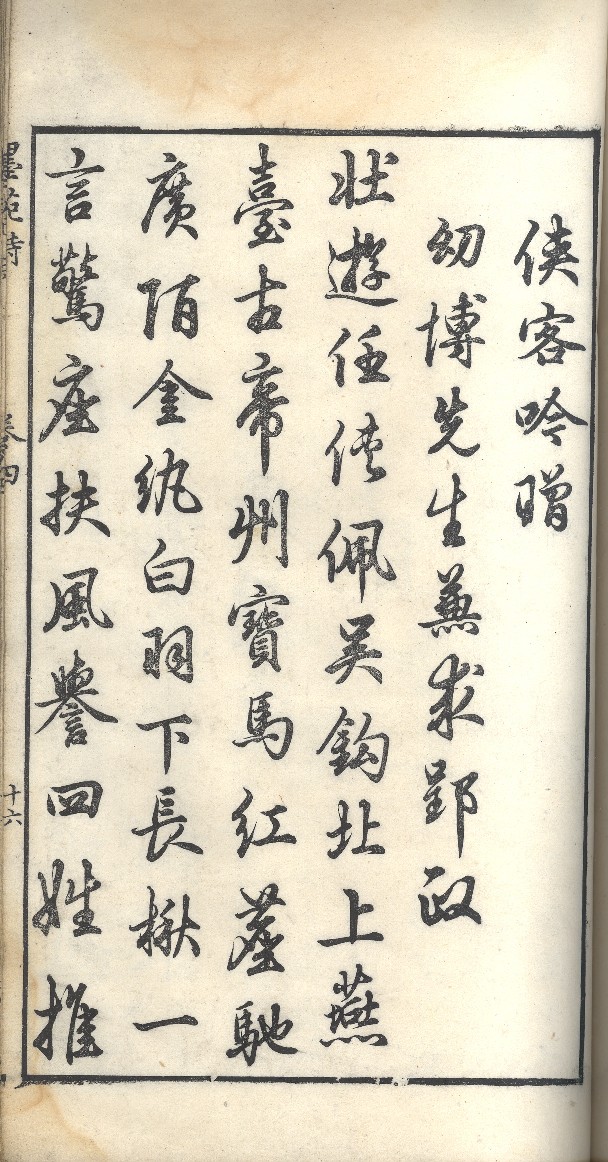 俠客吟贈
幼博先生兼求郢政
壮遊任俠佩吴鈎北上燕
臺古帝州寶馬紅塵馳
廣陌金紈白羽下長楸一
言驚座扶風譽四姓推
墨苑詩
卷四
十六